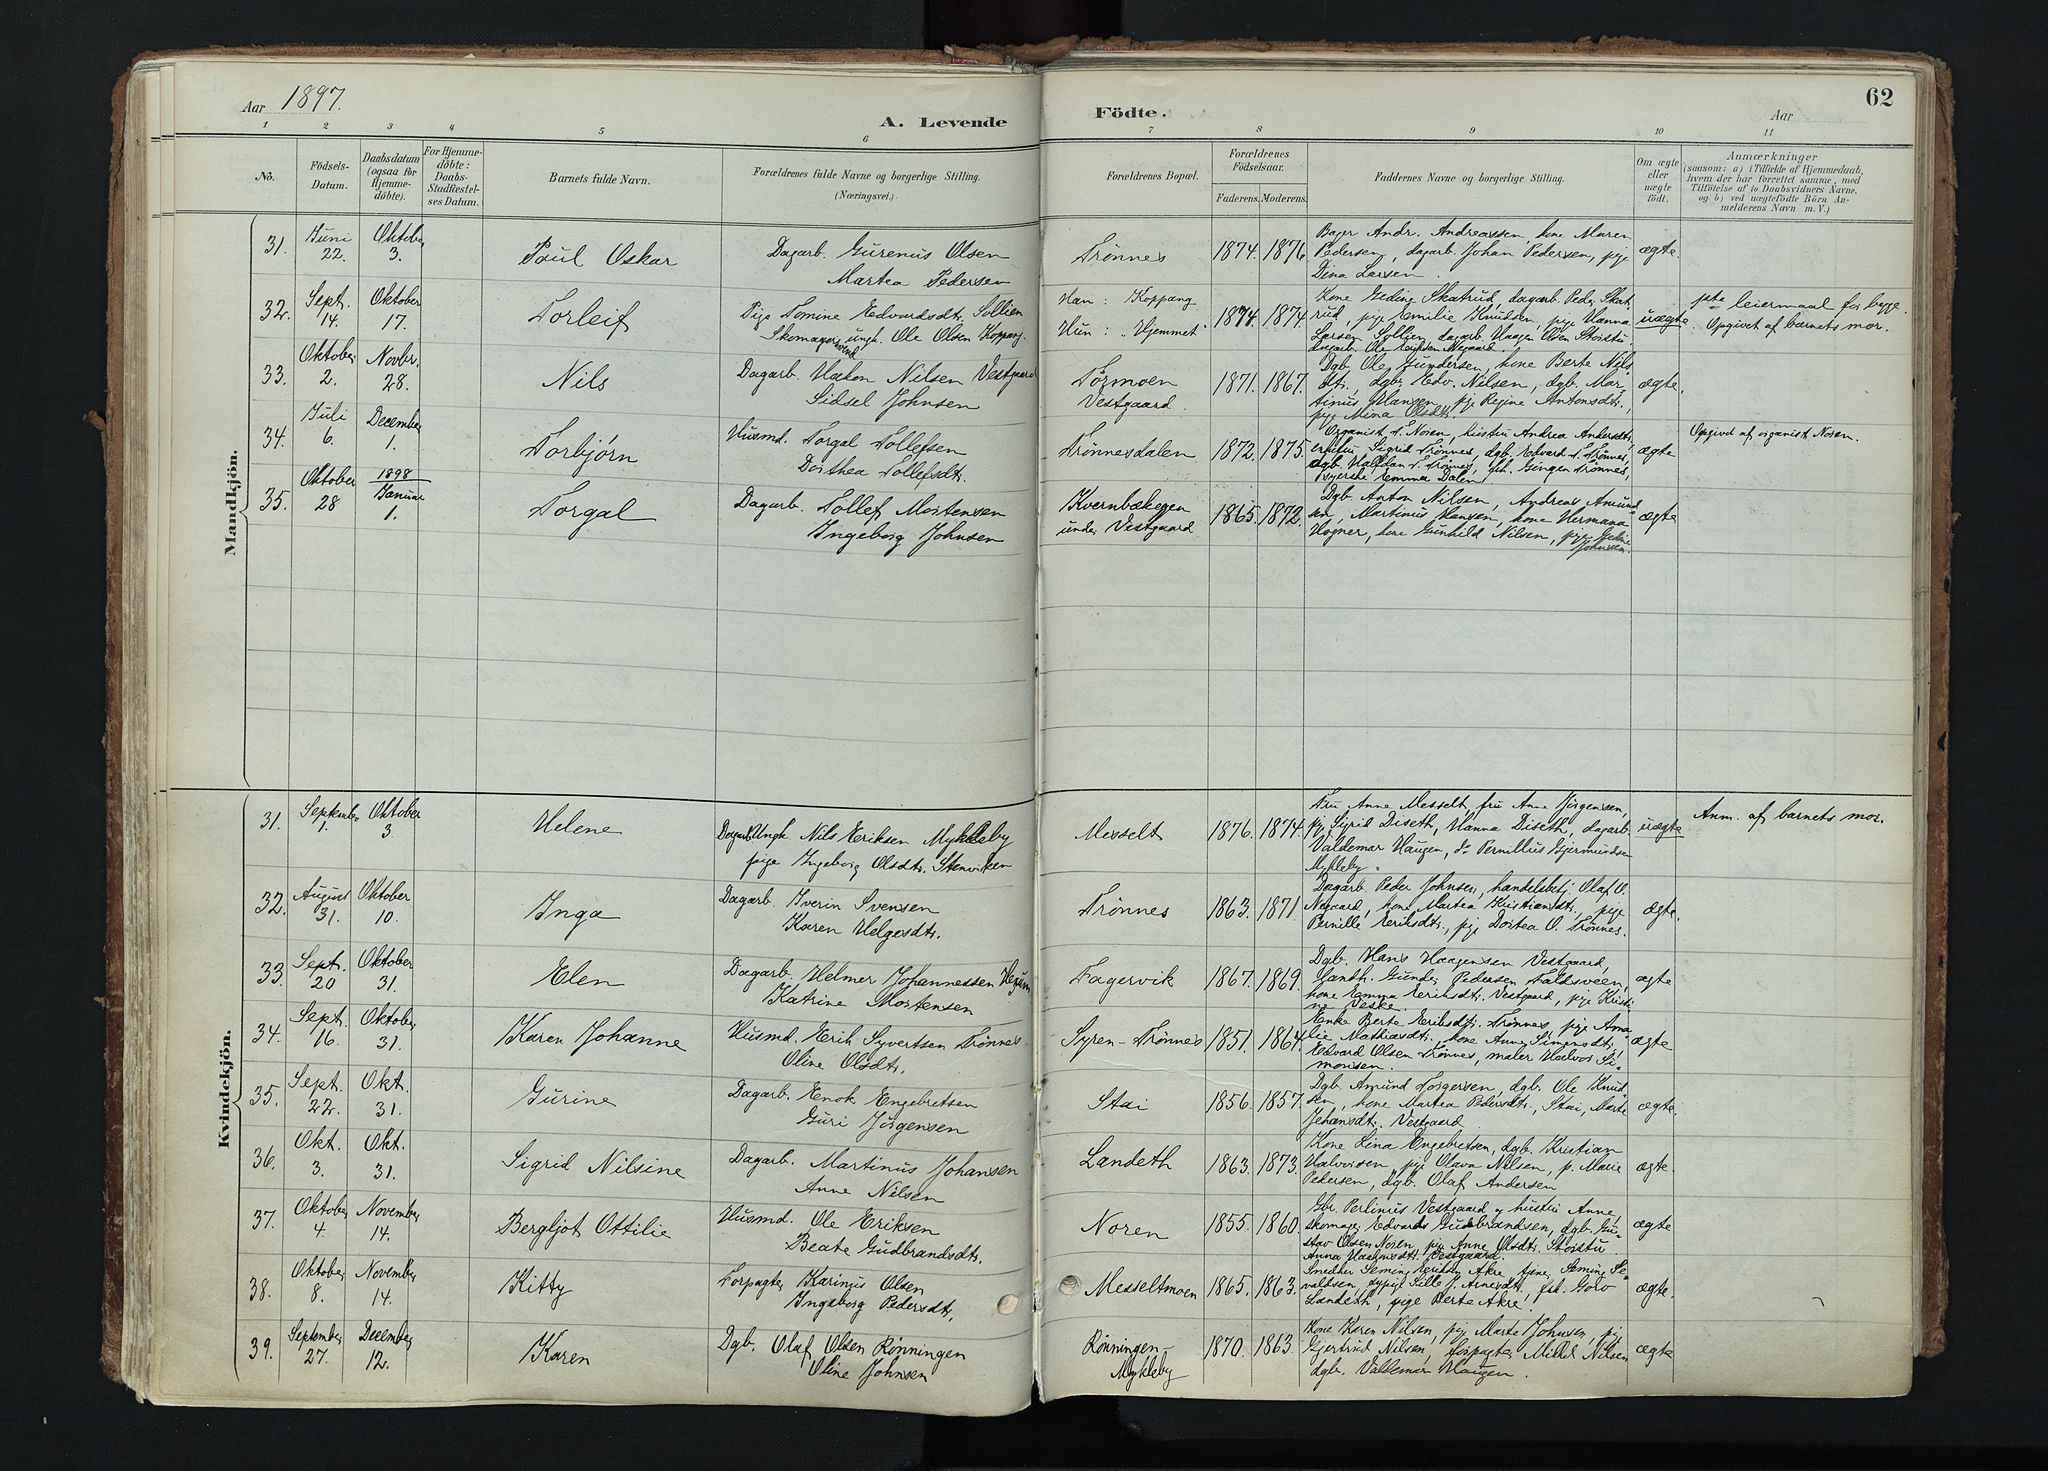 Aar 1897.
A. Levende Födte.
Aar
62
1 2 3 4 5 6 7 8 9 10 11
No.
Födsels-Datum.
Daabsdatum (ogsaa for Hjemmedöbte).
For Hjemmedöbte: Daabs-Stadfæstelses Datum.
Barnets fulde Navn.
Forældrenes fulde Navne og borgerlige Stilling. (Næringsvei.)
Forældrenes Bopæl.
Forældrenes Födselsaar.
Faderens. Moderens.
Faddernes Navne og borgerlige Stilling.
Om ægte eller uægte födt.
Anmærkninger
(saasom: a) i Tilfælde af Hjemmedaab,
hvem der har forrettet samme, med
Tilföielse af to Daabsvidners Navne,
og b) ved uægtefödte Börn An-
melderens Navn m. V.)
Mandkjön.
31. Juni 22. Oktober 3. Poul Oskar
Dagarb. Gurenus Olsen
Martea Pedersen
Trønnes 1874. 1876
Andr. Andreassen kone Maren
Pedersen, dagarb. Johan Pedersen, pige
Dina Larsen.
ægte.
32. Sept. 14. Oktober 17. Torleif
Pige Tomine Edvardsdtr. Sollien
Skomagersvend ungk. Ole Olsen Koppang
Han: Koppang
Hun: "Hjemmet"
1874. 1874.
Kone Gedine Skatrud, dagarb. Peder Skat
rud, pige Emilie Knudsen, pige Hanna
Larsen Sollien, dagarb. Haagen Olsen Storstu
dagarb. Ole Eriksen
uægte.
leiermaal for begge.
Opgivet af barnets mor.
33. Oktober 2. Novbr. 28. Nils
Dagarb. Hakon Nilsen Vestgaard
Sidsel Johnsen
Vestgaard.
1871. 1867.
Dgb. Ole Gundersen, kone Berte Nils
dtr. dgb. Edv. Nilsen, dgb. Mar
tinus Hansen, pige Regine Antonsdtr.,
pige Mina Olsdtr.
ægte.
34. Juli 6. December 1. Torbjørn
Husmd. Torgal Tollefsen
Dorthea Tollefsdt.
Trønnesdalen 1872. 1875.
Organist T. Noren, hustru Andrea Andersdtr.
Sigrid Trønnes, dgb. Edvard T. Trønnes,
dgb. Halfdan T. Trønnes, Trønnes,
Emma Dalen
ægte
Opgivd af organist Noren.
35. Oktober 28 1898 Januar 1. Torgal
Dagarb. Tollef Mortensen
Ingeborg Johnsen
Kvernbækegen
under Vestgaard
1865. 1872.
Dgb. Anton Nilsen, Andreas Amund
sen, Martinus Hansen, kone Hermana
Hogner, kone Gunhild Nilsen, pige
Johnsen.
ægte
Kvindekjön.
31. September 1. Oktober 3. Helene
Dagarb. Ungk. Nils Eriksen Mykleby
pige Ingeborg Olsdtr. Stenviken
Messelt 1876. 1874.
Fru Anne Messelt, fru Anne Jørgensen,
pig. Sigrid Diseth, Hanna Diseth, dagarb.
Valdemar Haugen, do Pernillus Gjermundsen
Mykleby.
uægte
Anm. af barnets mor.
32. August 31. Oktober 10. Inga
Dagarb. Iverin Svensen
Karen Helgesdtr.
Trønnes 1863. 1871
Dagarb. Peder Johnsen, handelsbetj. Olaf O.
Negaard, kone Martea Kristiansdtr., pige
Pernille Eriksdtr., pige Dortea O. Trønnes.
ægte.
33. Sept. 20 Oktober 31. Elen
Dagarb. Helmer Johannessen
Katrine Mortensen
Fagervik 1867. 1869.
Dgb. Hans Haagensen Vestgaard,
Gunder Pedersen
kone Emma Eriksdtr. Vestgaard, pige Kristi
ne Veske.
ægte
34. Sept. 16. Oktober 31. Karen Johanne
Husmd. Erik Syvertsen Trønnes
Oline Olsdtr.
Syren-Trønnes 1851. 1864.
Enke Berte Eriksdtr. Trønnes, pige Ama
lie Mathiasdtr., kone Anne Simensdtr.,
Edvard Olsen Trønnes, maler Halvor Si-
monsen.
ægte
35. Sept. 22. Okt. 31. Gurine
Dagarb. Enok Engebretsen
Guri Jørgensen
Stai 1856. 1857.
Dgb. Amund Torgersen, dgb. Ole Knud
sen, kone Martea Pedersdtr., Stai, Marte
Johansdt. Vestgaard
ægte.
36. Okt. 3. Okt. 31. Sigrid Nilsine
Dagarb. Martinus Johansen
Anne Nilsen
Landeth 1863. 1873.
Kone Lina Engebretsen, dgb. Kristian
Halvorsen, pige Olava Nilsen, p. Marie
Pedersen, dgb. Olaf Andersen
ægte.
37. Oktober 4. November 14. Bergljot Ottilie
Husmd. Ole Eriksen
Beate Gudbrandsdtr.
Noren 1855. 1860.
Gbr. Perlinus Vestgaard og hustru Anne,
skomager Edvard Gudbrandsen, dgb. Gu-
stav Olsen Noren, pige Anne Olsdtr. Storstu.
Anna Vestgaard
ægte
38. Oktober 8. November 14. Kitty
Forpagter Karinus Olsen
Ingeborg Pedersdtr.
Messeltmoen 1865. 1863.
Akre, Seming Se-
Landeth, pige Berte Akre.
ægte.
39. September 27. December 12. Karen
Dgb. Olaf Olsen Rønningen
Oline Johnsen
Rønningen-
Mykleby
1870. 1863.
Kone Karen Nilsen, pige Marte Johnsen, pig.
Gjertrud Nilsen, forpagter Mikkel Nilsen
dgbr. Valdemar Haugen.
ægte